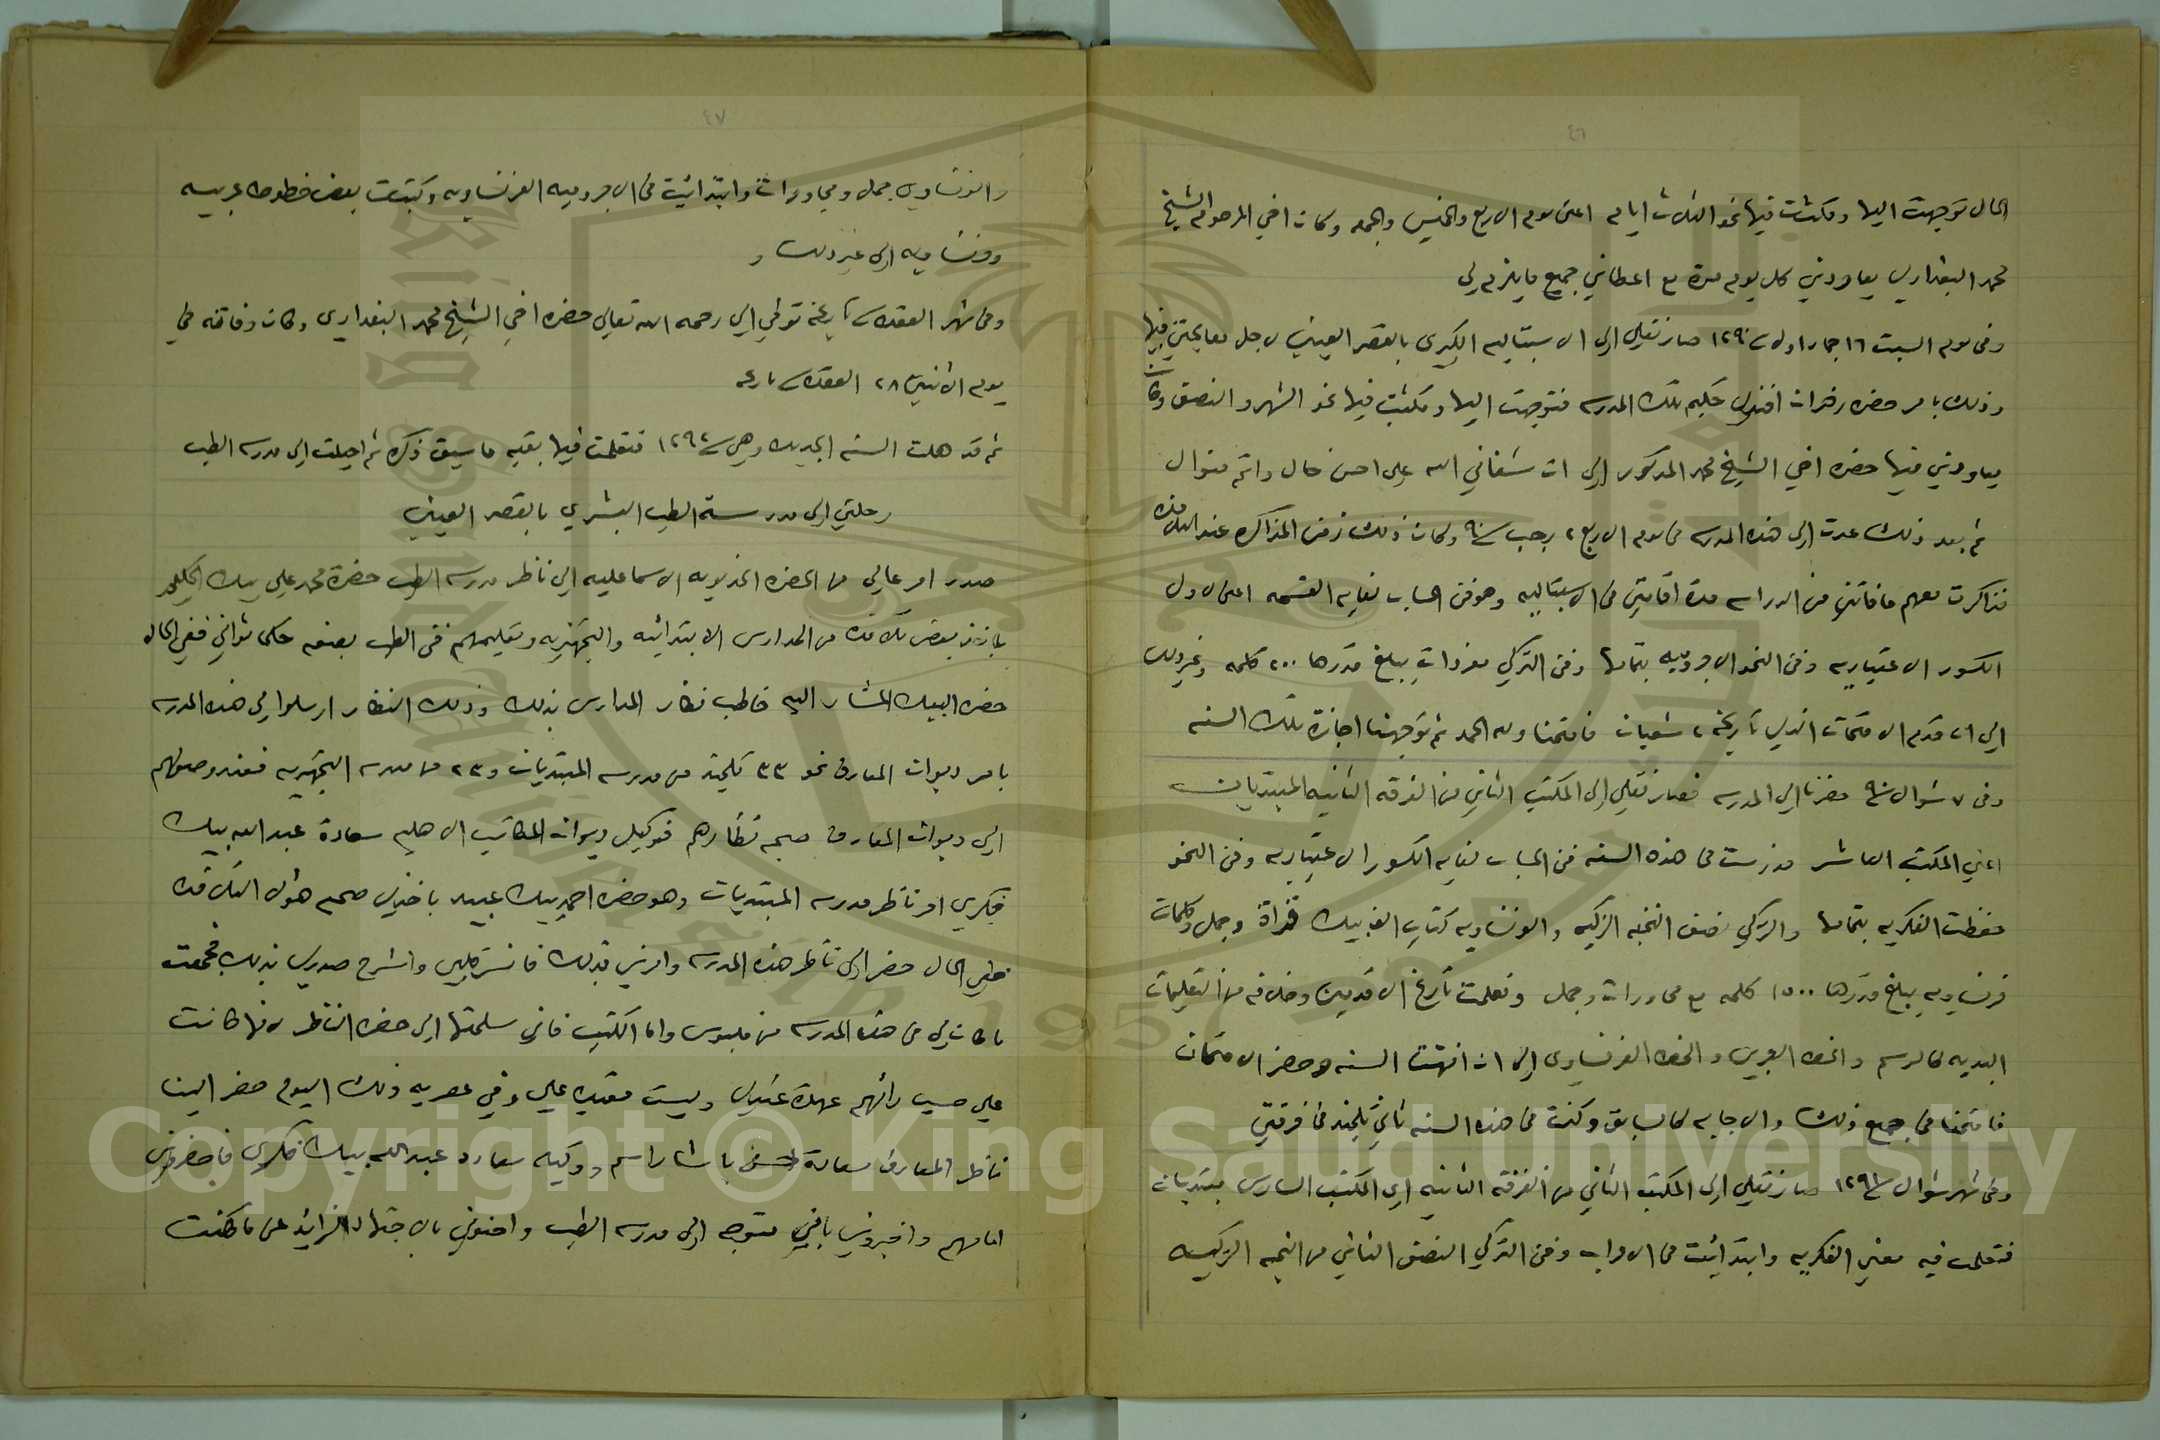 ٤٦
الحال توجهت اليها ومكثت فيها نحو الثلاث ايام اعنى يوم الاربع والخميس والجمعه وكان اخي المرحوم الشيخ
محمد البغدادي يعاودني كل يوم مرة مع اعطائي جميع ما يلزم لي
وفى يوم السبت ١٦ جماد اول سنة ١٢٩٠ صار نقلي الى الاسبتاليه الكبرى بالقصر العيني لاجل معالجتي فيها
وذلك بامر حضره افندى حكيم تلك المدرسه فتوجهت اليها ومكثت فيها نحو الشهر والنصف وكان
يعاودني فيها حضره اخي الشيخ محمد المذكور الى ان شفاني الله على احسن حال واتم منوال
ثم بعد ذلك عدت الى هذه المدرسه فى يوم الاربع ٢ رجب سنة ٩٠ وكان ذلك زمن المذاكره عند التلامذه
فتذاكرت معهم ما فاتني من الدراسه مدة اقامتي فى الاسبتاليه وهو فن الحساب لغايه القسمه اعنى الاول
الكسور الاعتياديه وفن النحو الاجروميه بتمامها وفن التركي مفردات يبلغ قدرها ٢٠٠ كلمه وغير ذلك
الى ان قدم الامتحان الذي تاريخه ٢ شعبان فامتحنا ولله الحمد ثم توجهنا اجازة تلك السنه
وفى ٧ شوال سنة ٩٠ حضرنا الى المدرسه فصار نقلي الى المكتب الثاني من الفرقه الثانيه المبتديان
اعني المكتب العاشر ودرست فى هذه السنه فن الحساب لغايه الكسور الاعتياديه وفن النحو
حفظت الفكريه بتمامها والتركي نصف النخبه الزكيه والفرنساويه كتاب الفابيك قراة وجمل وكلمات
فرنساويه يبلغ قدرها ١٥٠٠ كلمه مع محاورات وجمل وتعلمت تاريخ الاقدمين وخلافه من التعليمات
اليديه كالرسم والخط العربى والخط الفرنساوى الى ان انتهت السنه وحضر الامتحان
فامتحنا فى جميع ذلك والاجابه كالسابق وكنت فى هذه السنه ثاني تلميذ فى فرقتي
وفى شهر شوال سنة ١٢٩١ صار نقلي الى المكتب الثاني من الفرقه الثانيه اى المكتب السادس مبتديان
فتعلمت فيه معنى الفكريه وابتدائت فى الاعراب وفن التركي النصف الثاني من النخبه الزكيه
٤٧
والفرنساوي جمل ومحاورات وابتدائيت فى الاجروميه الفرنساويه وكتبت بعض خطوط عربيه
وفرنساويه الى غير ذلك و
وفى شهر القعده تاريخه توفي الى رحمه الله تعالى حضره اخي الشيخ محمد البغدادى وكان وفاته في
يوم الاثنين ٢٨ القعده تاريخه
ثم قد هلت السنه الجديده وهي سنة ١٢٩٢ فتعلمت فيها بقيه ما سيق ذكره ثم احيلت الى مدرسه الطب
رحلتي الى مدرسة الطب البشري بالقصر العيني
صدر امر عالي من الحضره الخديويه الاسماعليه الى ناظر مدرسه الطب حضرة محمد علي بيك الحكيم
باخذ بعض تلامذه من المدارس الابتدائيه والتجهيزيه وتعليمهم فن الطب بصفه حكما ثواني ففي الحال
حضره البيك المشار اليه خاطب نظار المدارس بذلك وذلك النظار ارسلوا لي هذه المدرسه
بامر ديوان المعارف نحو ٣٣ تلميذ من مدرسه المبتديان و٢٣ من مدرسه التجهيزيه فعند وصولهم
الى ديوان المعارف صحبه نظارهم فوكيل ديوان المكاتب الاهليه سعادة عبد الله بيك
فكري امر ناظر مدرسه المبتديان وهو حضره احمد بيك عبيد باخذي صحبه هؤلاء التلامذه
ففي الحال حضر الى ناظر هذه المدرسه وامرني بذلك فانسر قلبي وانشرح صدري بذلك فجمعت
ما كان لي فى هذه المدرسه من ملبوس واما الكتب فاني سلمتها الى حضره الناظر لانها كانت
علي حسب رائهم عهدة عندي وليست مقيده علي وفي عصريه ذلك اليوم حضر الينا
ناظر المعارف سعادة باشا راسم ووكيله سعاده عبد الله بيك فكرى فاحضروني
امامهم واخبروني باني متوجه الى مدرسه الطب واحثوني بالاجتهاد الزايد عن ما كنت
Copyright © King Saud University
King Saud University
1957